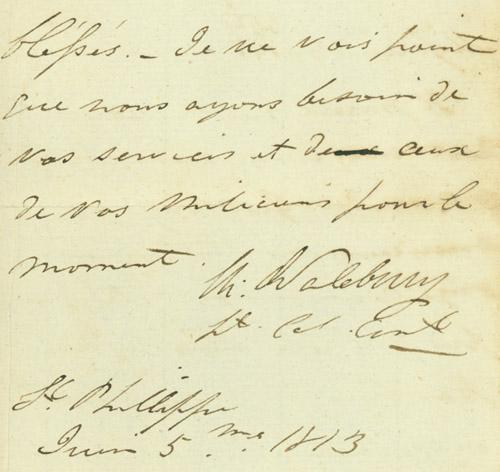 blessés. _ Je ne vois point
que nous ayons besoin de
vos services et de ceux
de vos miliciens pour le
moment.
Lt. Col.
St. Philippe
Juin 5 me. 1813